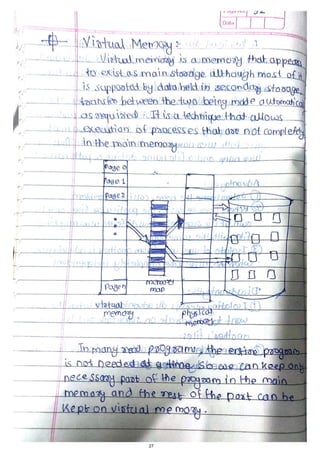 Date
Virtual Memory :
Virtual memory is a memory that appears
to exist as main storage although most of it
is supported by data held in secondary storage,
transfer between the two being made automatical
as required. It is a technique that allows
execution of processes that are not completely
in the main memory
Page 0
Page 1
Page 2
Page n
memory
map
virtual
memory
physical
memory
In many real programs, the entire program
is not needed at a time. So we can keep only
necessary part of the program in the main
memory and the rest of the part can be
kept on virtual memory.
27